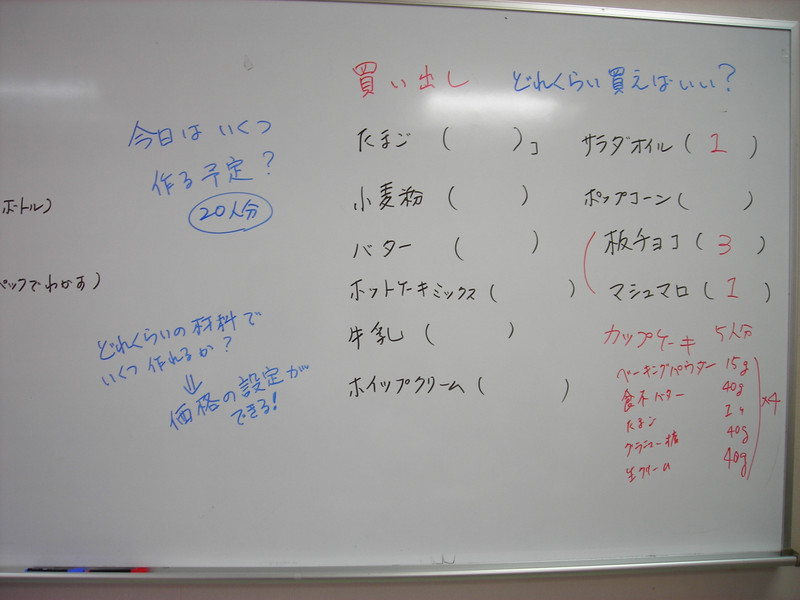 買い出し どれくらい買えばいい?
今日はいくつ
作る予定?
20人分
ボトル)
パックでわかす)
どれくらいの材料で
いくつ作れるか?
⇓
価格の設定が
できる!
たまご ( )コ
小麦粉 ( )
バター ( )
ホットケーキミックス ( )
牛乳 ( )
ホイップクリーム ( )
サラダオイル ( 1 )
ポップコーン ( )
板チョコ ( 3 )
マシュマロ ( 1 )
カップケーキ 5人分
ベーキングパウダー 15g
バター 40g
たまご 1コ
グラニュー糖 40g
生クリーム 40g
×4